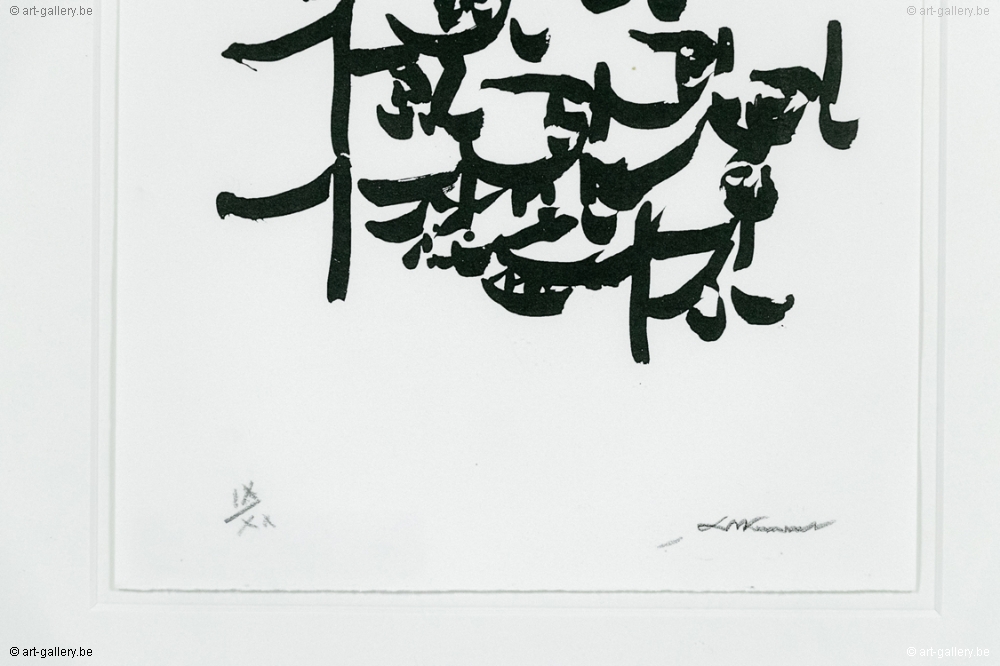 © art-gallery.be © art-gallery.be
IX
XX
© art-gallery.be © art-gallery.be